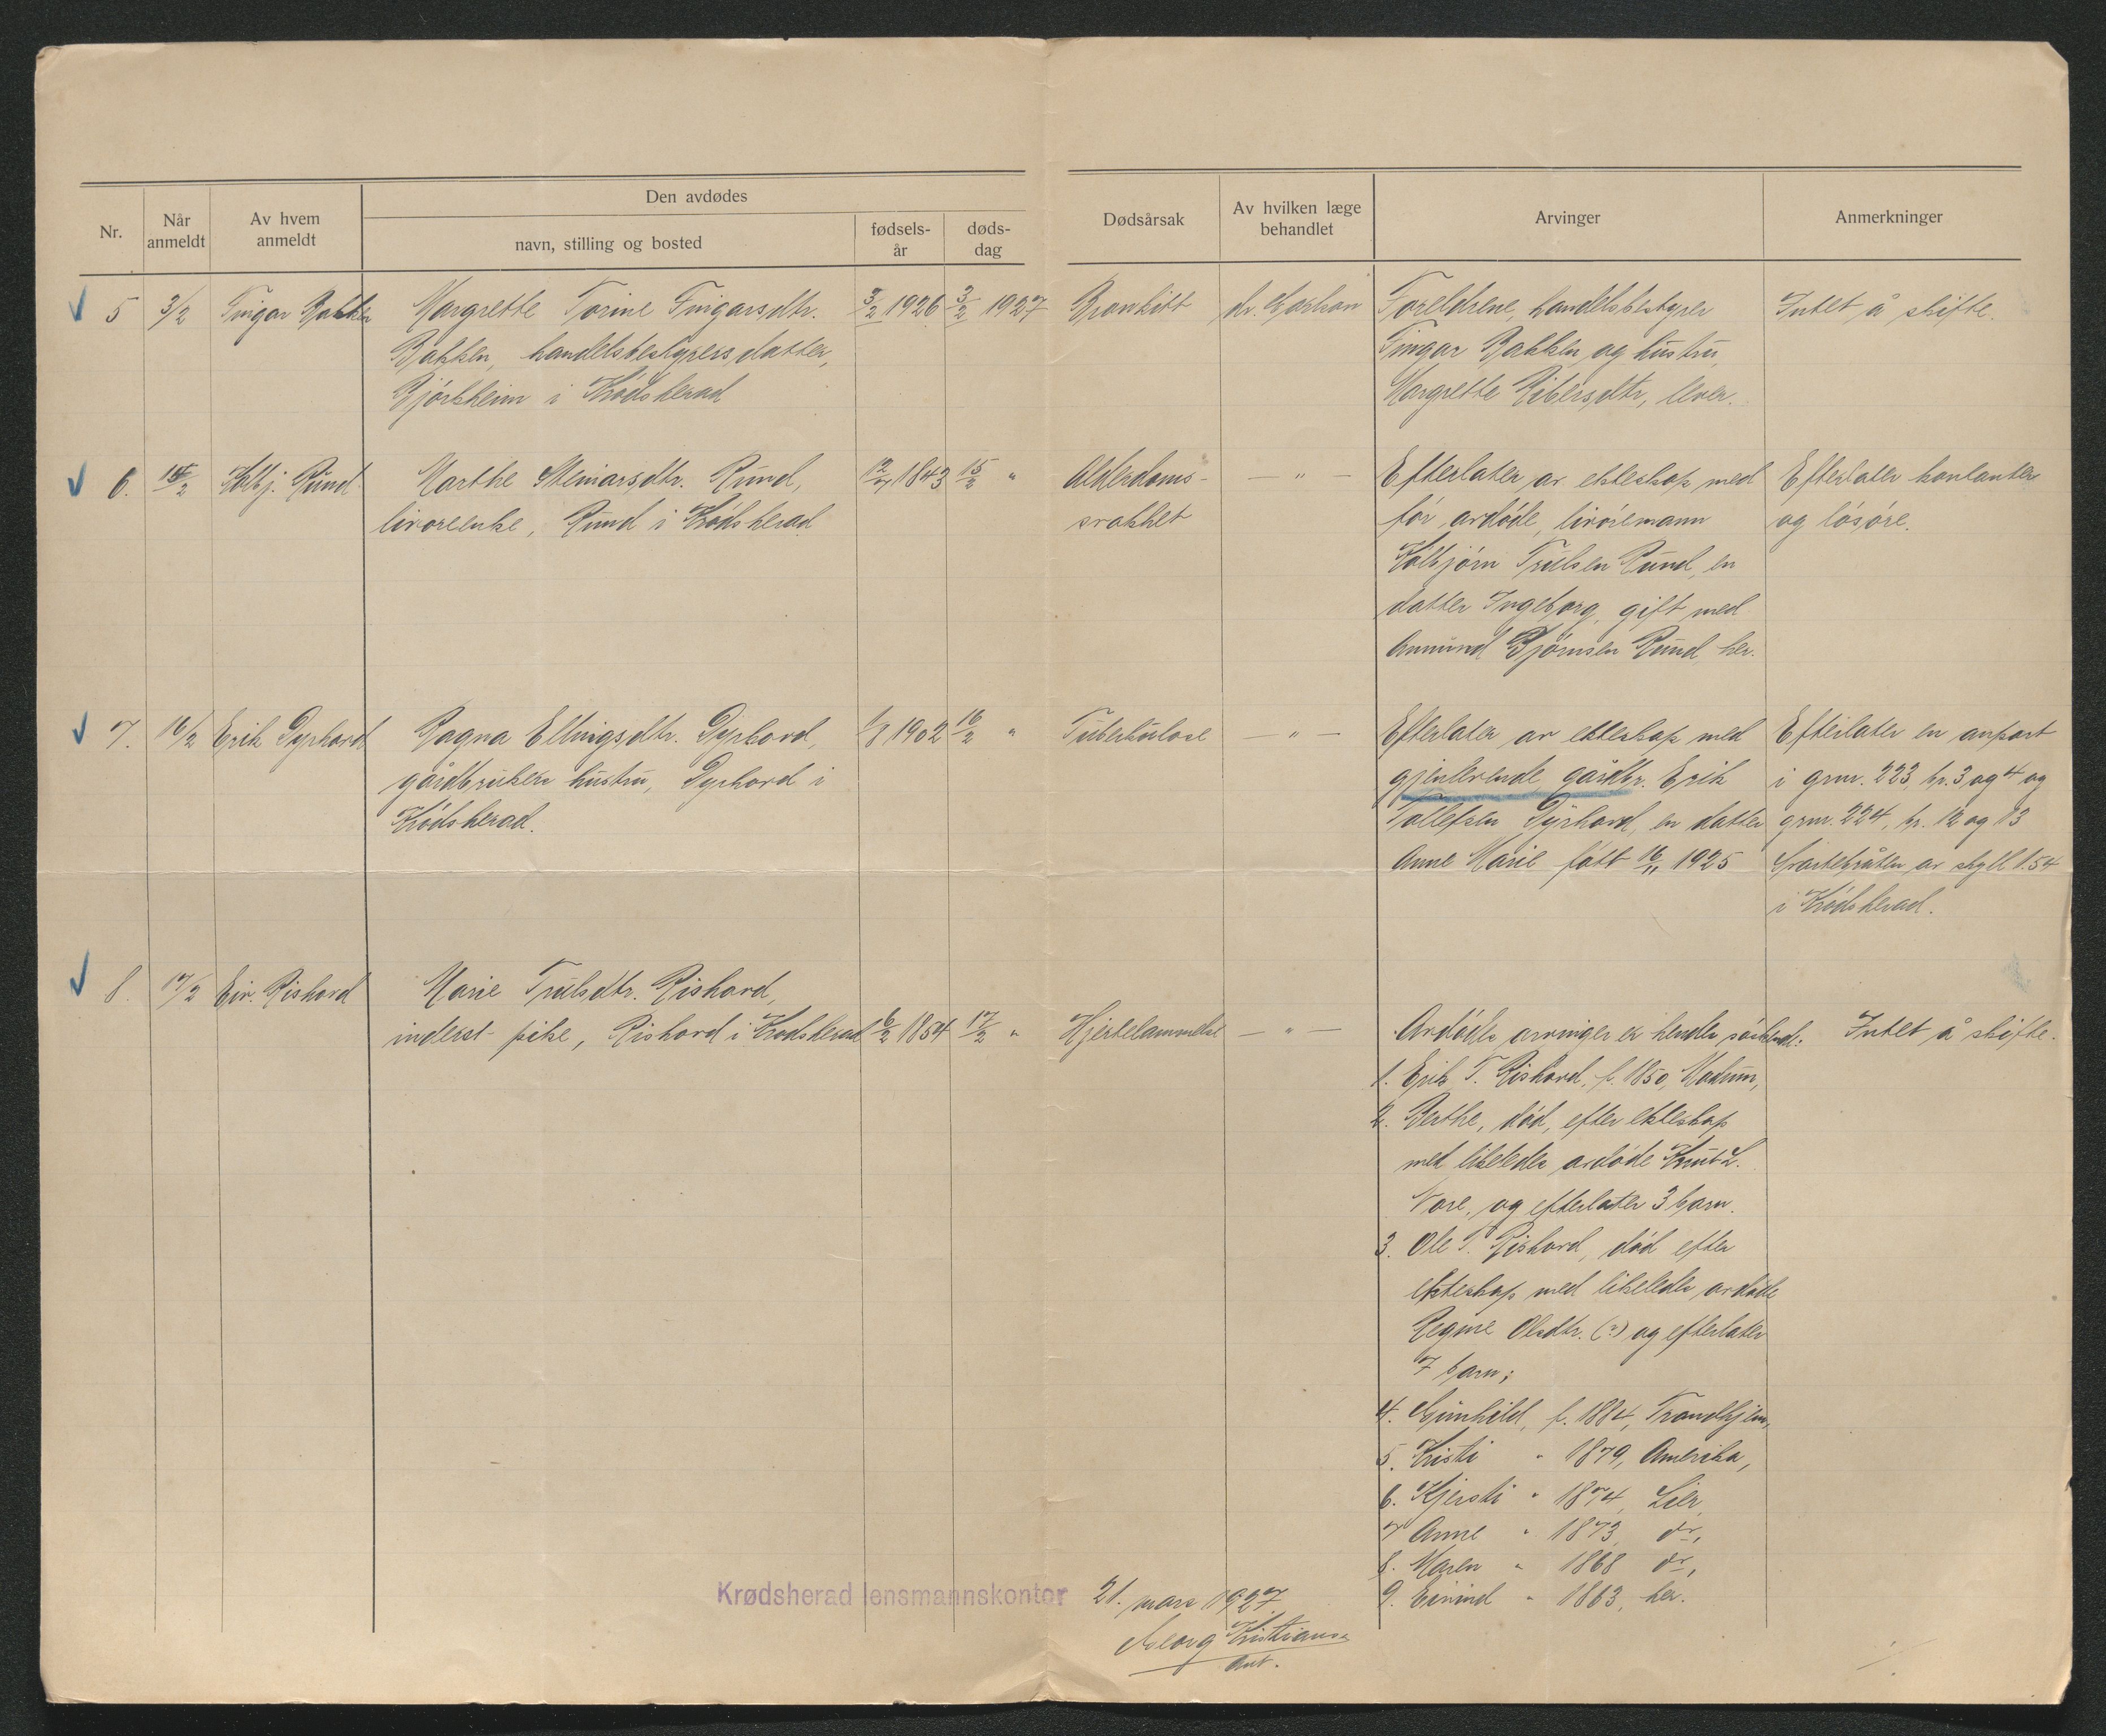 Den avdødes
Nr.
Når anmeldt
Av hvem anmeldt
navn, stilling og bosted
fødsels-år
døds-dag
Dødsårsak
Av hvilken læge behandlet
Arvinger
Anmerkninger
5 3/2 Fingar Bakken
Margrethe Torine Fingarsdtr.
Bakken, handelsbestyrers datter,
Bjørkheim i Krødsherad
3/2 1926 3/2 1927 Bronkitt
Foreldrene, handelsbestyrer
Fingar Bakken og hustru,
Margrethe, lever.
Intet å skifte.
6. Kolbj. Rund
Marthe Steinarsdtr. Rund,
livøreenke, Rund i Krødsherad
1843 15/2 " Alderdoms-
svakhet
— " —
Efterlater av ekteskap med
før avdøde, livøremann
Kolbjørn Trulsen Rund, en
datter Ingeborg, gift med
Anmund Bjørnsen Rund, her.
Efterlater kontanter
og løsøre.
7. 16/2 Erik Dyrhovd
Ragna Ellingsdtr. Dyrhovd,
gårdbrukers hustru, Dyrhovd i
Krødsherad.
1/8 1902 16/2 " Tuberkulose
— " —
Efterlater av ekteskap med
gjenlevende gårdbr. Erik
Tollefsen Dyrhovd, en datter
Anne Marie født 16/11 1925
Efterlater en anpart
i grnr. 223, br. 3 og 4 og
grnr. 224, br. 12 og 13
Svartebråten av skyll 1.54
i Krødsherad.
8. 17/2 Eiv. Rishovd
Marie Trulsdtr. Rishovd,
inderst-pike, Rishovd i Krødsherad 6/2 1854 17/2 "
Hjertelammelse
— " —
Avdødes arvinger er hendes søskend:
1. Erik T. Rishovd, f. 1850, Modum,
2. Berthe, død, efter ekteskap
med likeledes avdøde Knut L.
Nore, og efterlater 3 barn.
3. Ole T. Rishovd, død efter
ekteskap med likeledes avdøde
Regine Olsdtr. (?) og efterlater
7 barn;
4. Gunhild, f. 1884, Trondhjem,
5. Kristi " 1879, Amerika,
6. Kjersti " 1874, Lier,
7 Anne " 1873, do,
8. Maren " 1868 do,
9. Eivind " 1863, her.
Intet å skifte.
Krødsherad lensmannskontor 21. mars 1927.
Georg Kristiansen